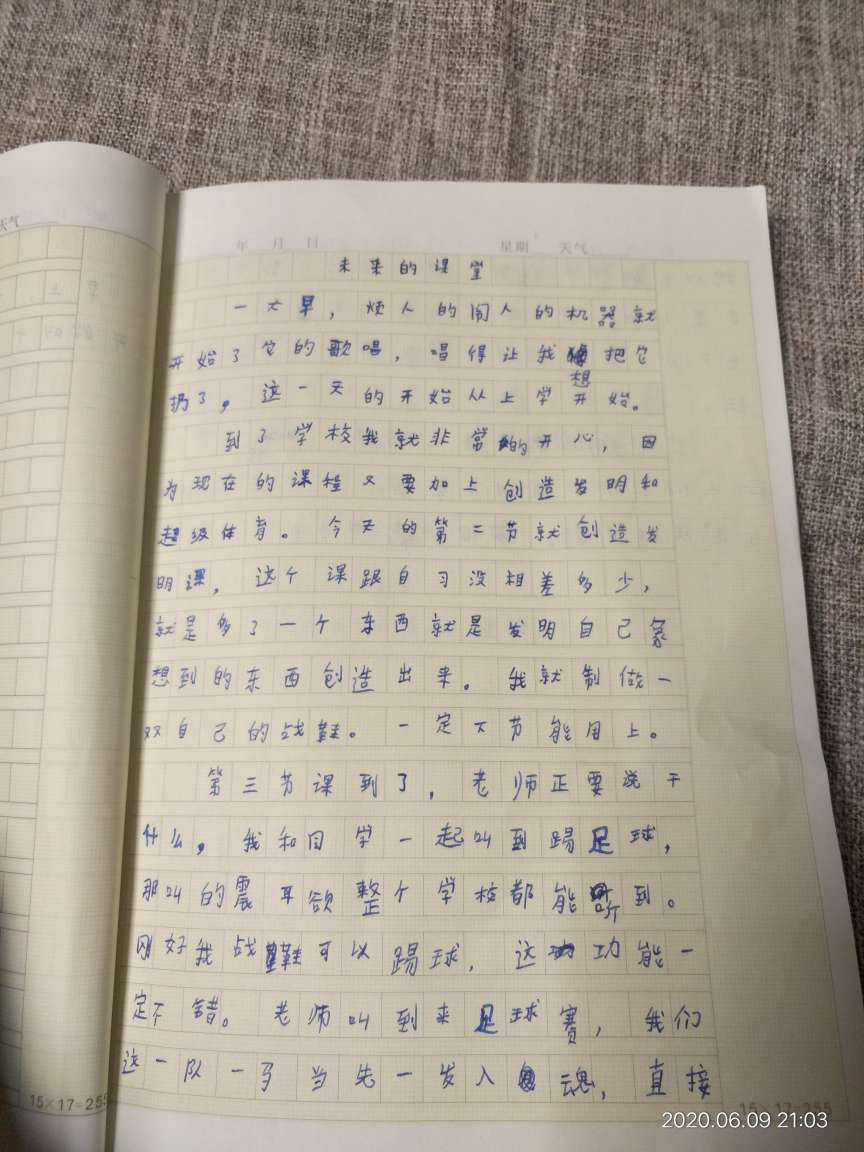 天气
年 月 日 星期 天气
未来的课堂
一大早，烦人的闹人的机器就
开始了它的歌唱，唱得让我想把它
扔了。这一天的开始从上学开始。
到了学校我就非常的开心，因
为现在的课程又要加上创造发明和
超级体育。今天的第二节就创造发
明课，这个课跟自习没相差多少，
就是多了一个东西就是发明自己象
想到的东西创造出来。我就制做一
双自己的战鞋。一定下节能用上。
第三节课到了，老师正要说干
什么，我和同学一起叫到踢足球，
那叫的震耳欲整个学校都能听到。
刚好我战鞋可以踢球，这功能一
定不错。老师叫到来足球赛，我们
这一队一马当先一发入魂，直接
15×17=255
15×17=255
2020.06.09 21:03